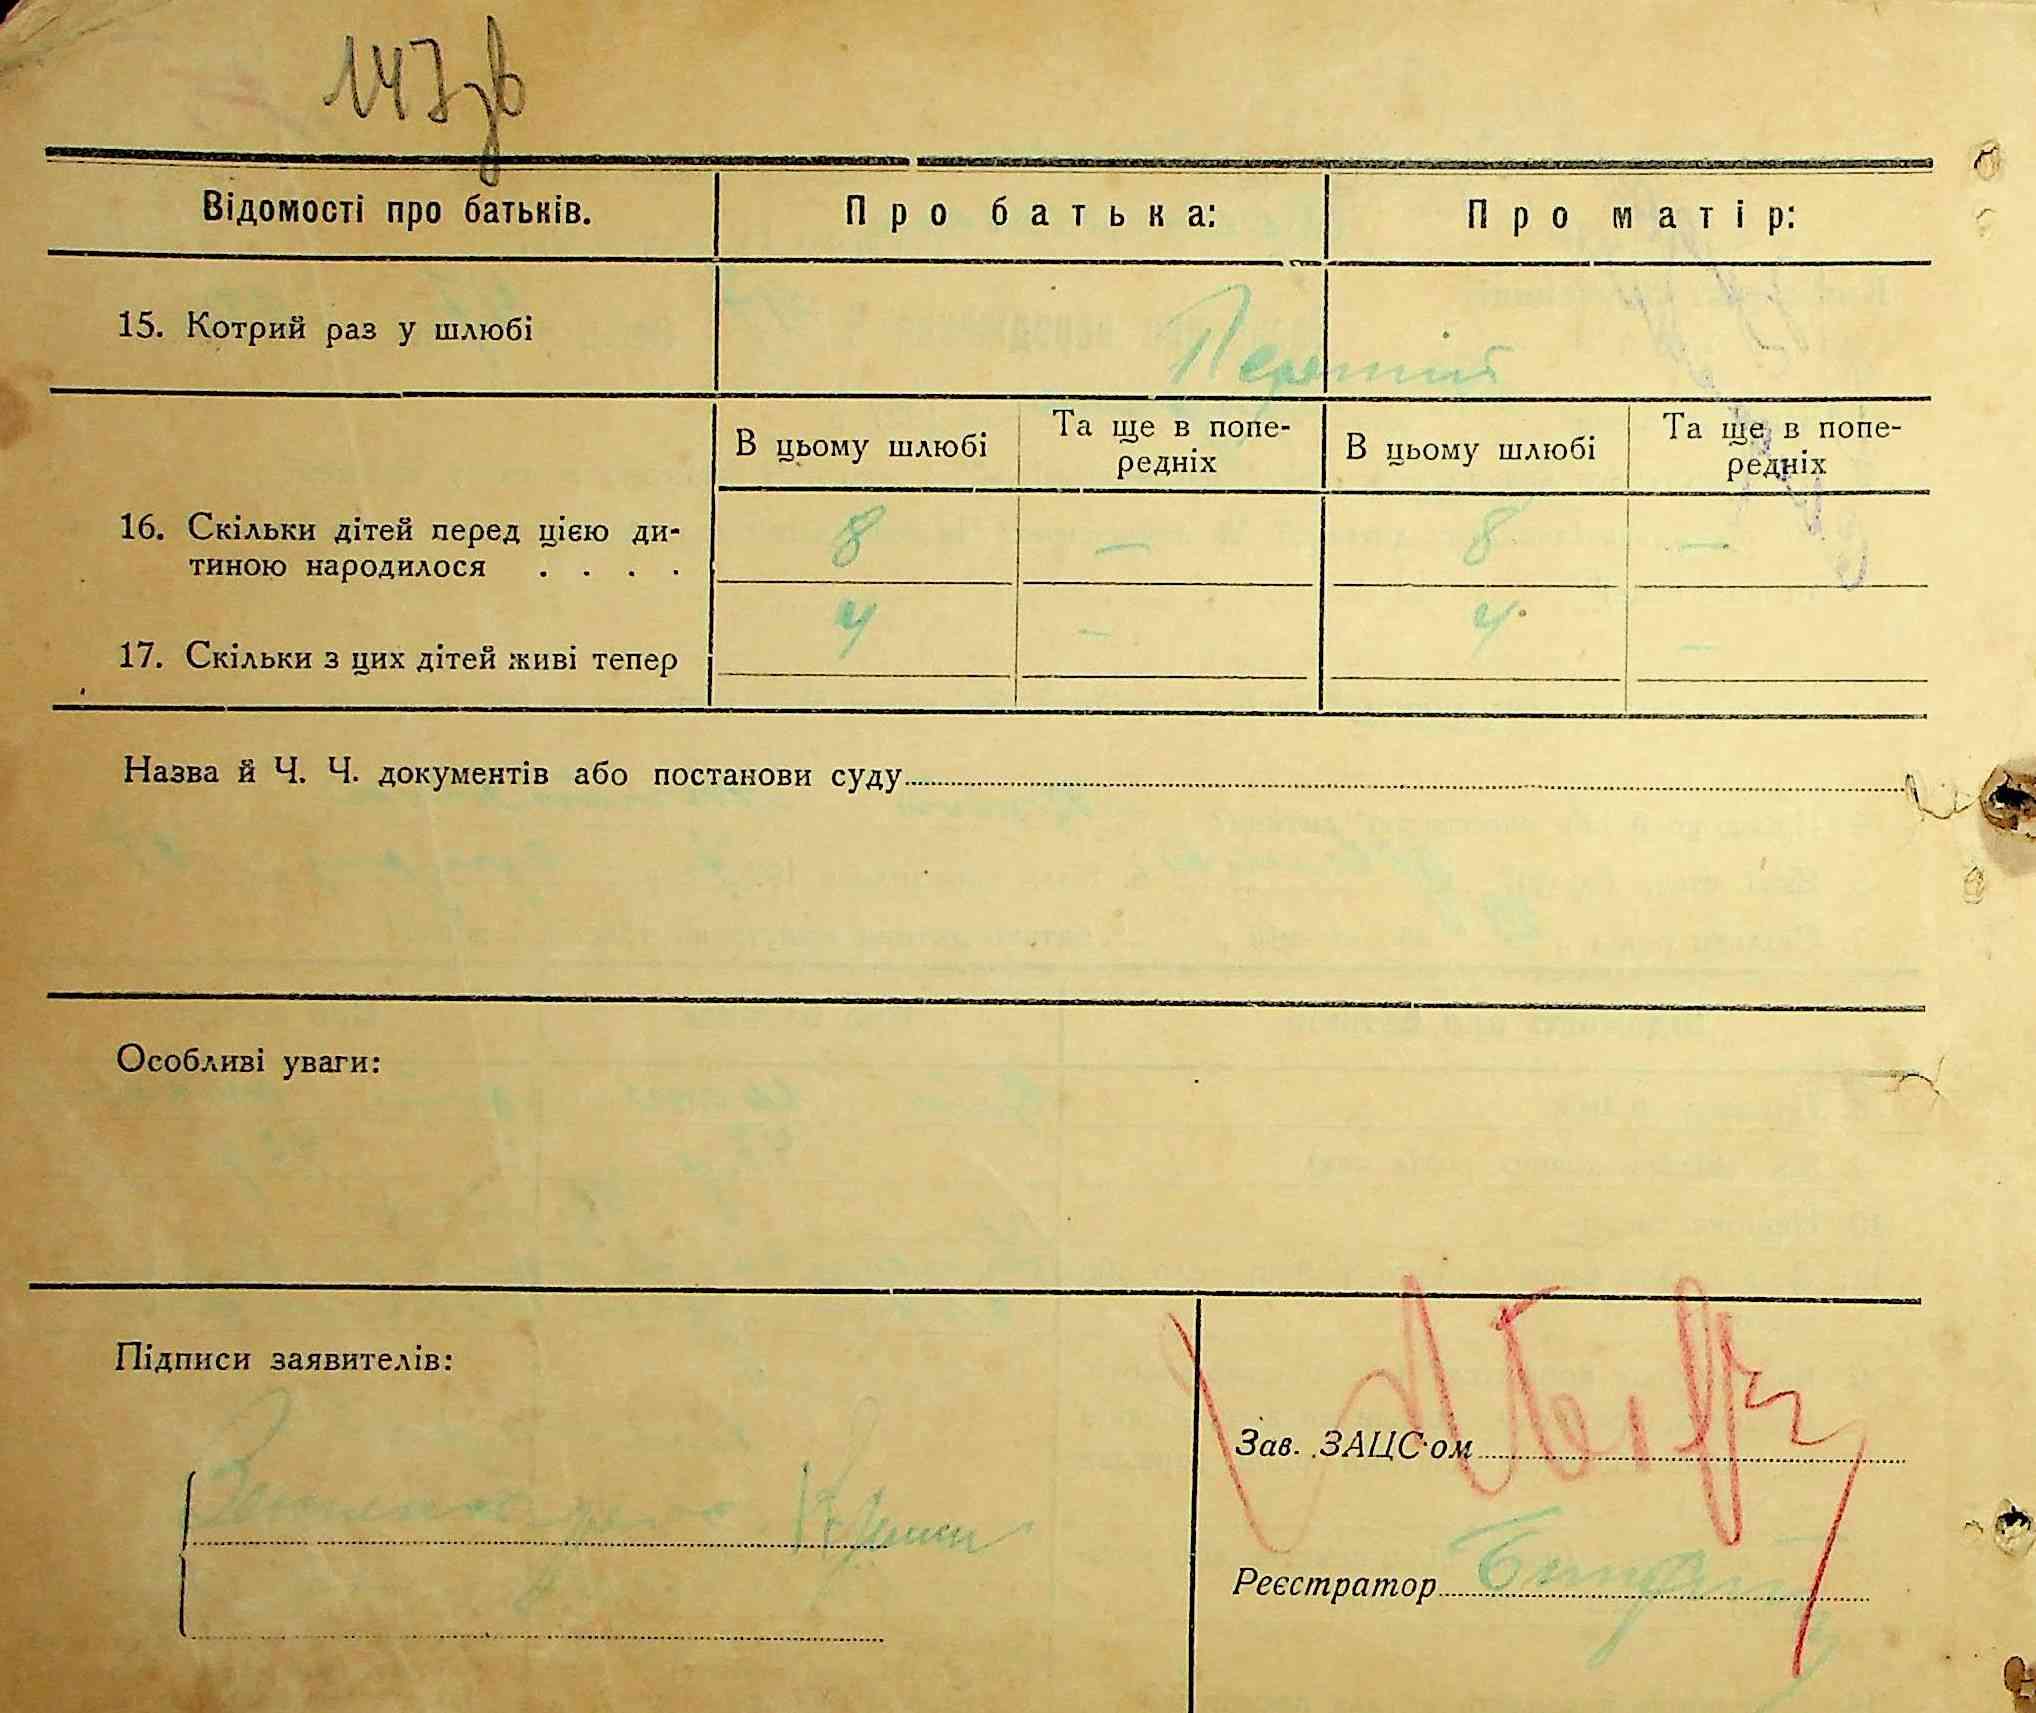 147зв
Відомості про батьків.
Про батька:
Про матір:
15. Котрий раз у шлюбі
Перший
В цьому шлюбі
Та ще в попе-
редніх
В цьому шлюбі
Та ще в попе-
редніх
16. Скільки дітей перед цією ди-
тиною народилося . . . .
8 — 8 —
17. Скільки з цих дітей живі тепер
4 — 4 —
Назва й Ч. Ч. документів або постанови суду
Особливі уваги:
Підписи заявителів:
Зав. ЗАЦС·ом
Реєстратор